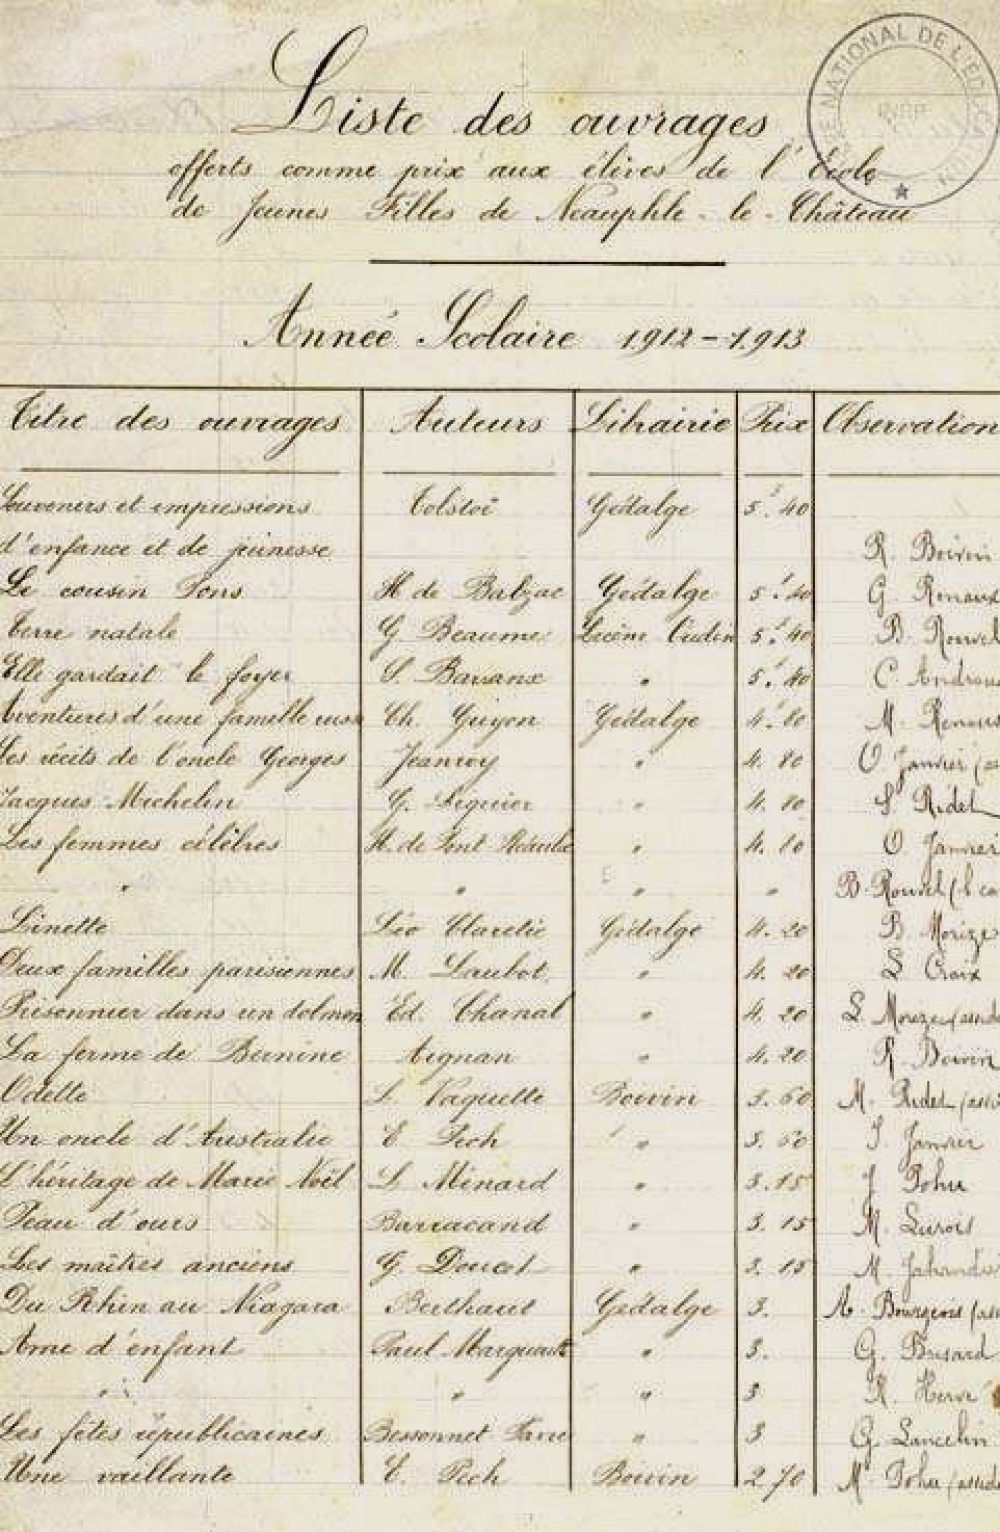 Liste des ouvrages
offerts comme prix aux élèves de l'École
de Jeunes Filles de Neauphle-le-Château
Année Scolaire 1912-1913
Titre des ouvrages Auteurs Librairie Prix Observation
Souvenirs et impressions Tolstoï Gédalge 5f.40
d'enfance et de jeunesse R. Boivin
Le cousin Pons H de Balzac Gédalge 5f.40 G. Renaux
Terre natale G Beaume Lecène Oudin 5f.40 B. Rouvel
Elle gardait le foyer S. " 5f.40 C.
Aventures d'une famille Ch. Guyon Gédalge 4f.80 M.
Les récits de l'oncle Georges Jeanroy " 4.80 O Janvier
Jacques Michelin G. " 4.80 S. Ridel
Les femmes célèbres H. de Pont " 4.80 O Janvier
" " " " B. Rouvel
Linette Léo Claretie Gédalge 4.20 B. Morize
Deux familles parisiennes M. Laubot " 4.20 L Croix
Prisonnier dans un dolmen Ed. Chanal " 4.20 L. Morize
La ferme de Aignan " 4.20 R. Boivin
Odette L. Vaquette Boivin 3.60 M. Ridel
Un oncle d'Australie E. Pech " 3.60 J Janvier
L'héritage de Marie Noël L. Ménard " 3.15 J Pohu
Peau d'ours Barracand " 3.15 M.
Les maîtres anciens G. Doucet " 3.15 M.
Du Rhin au Niagara Berthaut Gédalge 3. A. Bourgeois
Ame d'enfant Paul " 3. G. Brisard
" " " 3 R. Hervé
Les fêtes républicaines Bessonnet Favre " 3 G. Lancelin
Une vaillante E. Pech Boivin 2.70 M. Pohu